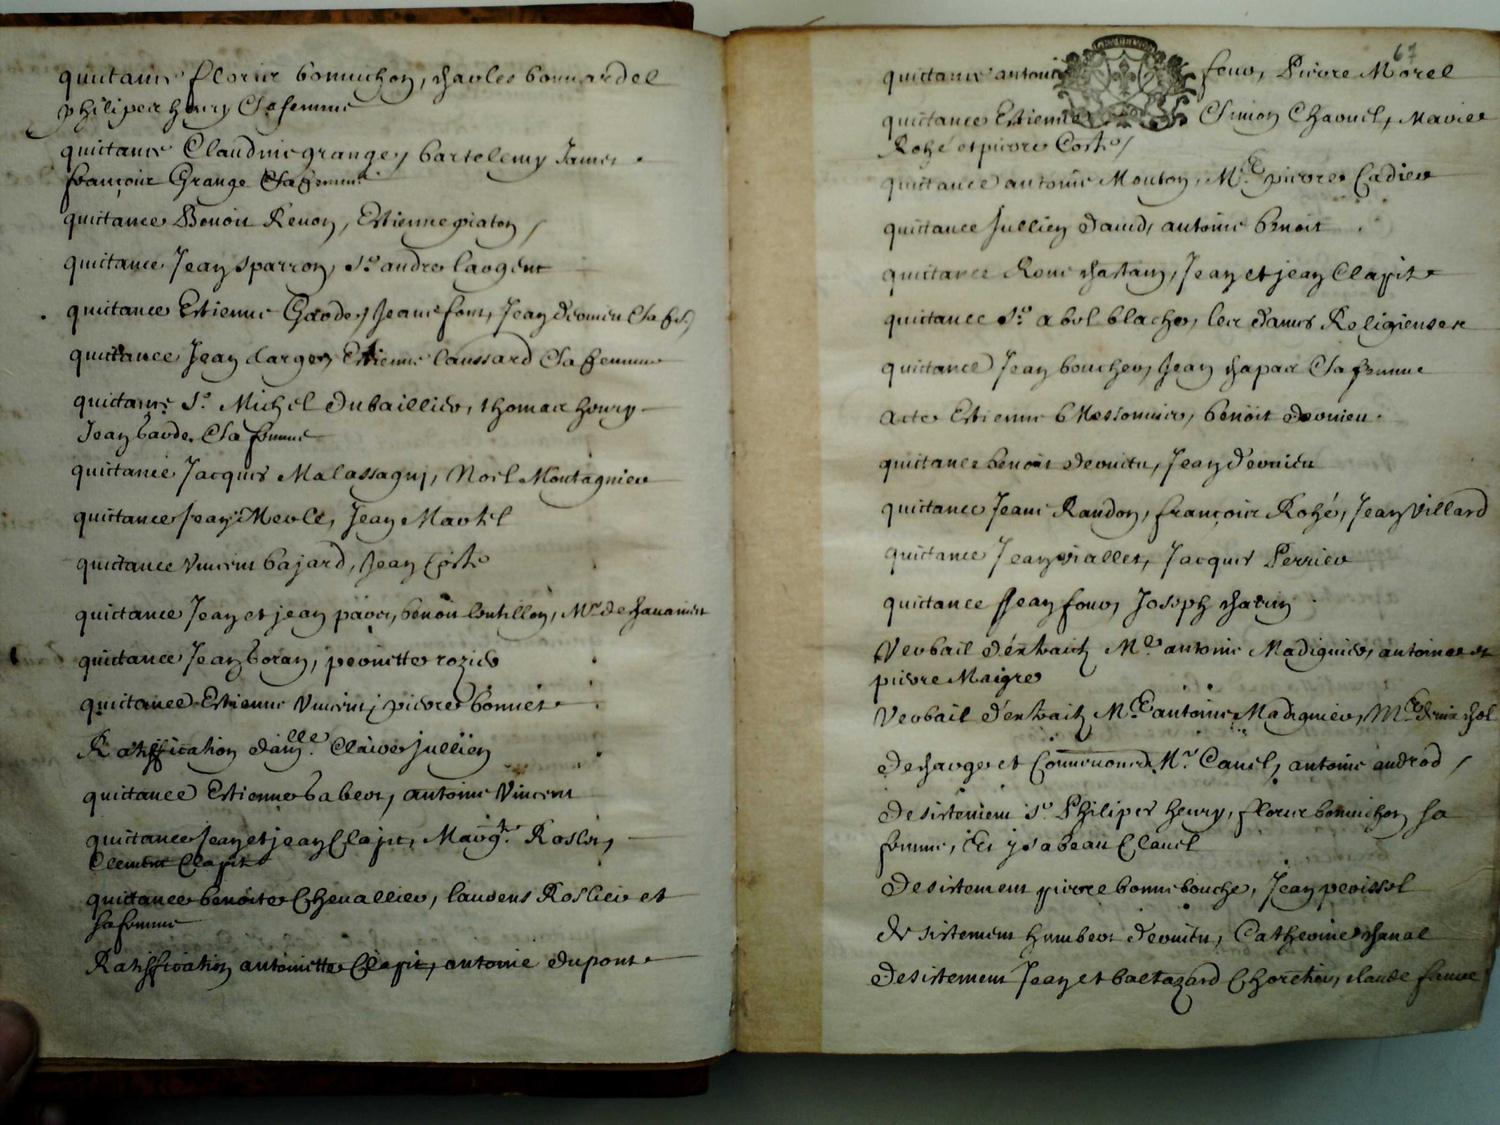 quictance florie bonnichon, charles bonnardel
philipes henry & sa femme
quictance Claudine grange, bartelemy James
françois Grange & sa femme
quictance Benoit Renon, Estienne piaton
quictance Jean sparron, Sr. andre largent
quictance Estienne Garde, Jeane four, Jean devuitu & sa fe.
quictance Jean larger, Estienne laussard & sa femme
quictance Sr. Michel Dubaillier, thomas henry
Jean barde & sa femme
quictance Jacques Malassagny, Noel Montagnier
quictance Jean Merle, Jean Martel
quictance Vincent bajard, Jean Coste
quictance Jean et jean paver, benoit lentillon, Mr. de chavanieu
quictance Jean boran, peronette rozier
quictance Estienne Vincent, pierre bonnet
Ratiffication damlle. Claire Jullien
quictance Estienne baber, antoine Vincent
quictance Jean et jean Clapit, Margte. Roslin,
Clement Clapit
quictance benoite Chevallier, laurens Roslier et
sa femme
Ratiffication antoinette Clapit, antoine dupont
67
quictance antoine four, Pierre Morel
quictance Estienne Simon Charvel, Marie
Rohé et pierre Coste
quictance antoine Mouton, Me. pierre Cadier
quictance Jullien david, antoine benoit
quictance Rone chastain, Jean et jean Clapit
quictance Sr. abel blache, les dames Religieuses
quictance Jean boucher, Jean chapas & sa femme
Acte Estienne Messonnier, benoit devuieu
quictance benoit devuitu, Jean devuieu
quictance Jeane Randon, françois Rohé, Jean Villard
quictance Jean viallet, Jacques Perrier
quictance Jean four, Joseph chatin
Verbail d'extraict Me. antoine Madignier, antoine et
pierre Maigre
Verbail d'extraict Me. antoine Madignier, Me. denis chol
Descharge et Convenances Mr. Cancel, antoine androd
Desistement Sr. Philipes henry, florie bonnichon sa
femme, & ysabeau Clavel
Desistement pierre bonnebouche, Jean peroissel
Desistement humbert devuitu, Catherine chanal
Desistement Jean et baltazard Choretier, claude faure